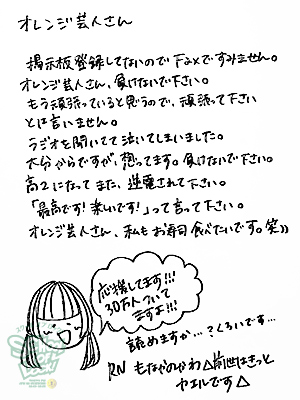 オレンジ芸人さん
掲示板登録してないのでFaxですみません。
オレンジ芸人さん、負けないで下さい。
もう頑張っていると思うので、頑張って下さい
とは言いません。
ラジオを聞いてて泣いてしまいました。
大分からですが、想ってます。負けないで下さい。
高2になってまた、逆電されて下さい。
「最高です!楽しいです!」って言って下さい。
オレンジ芸人さん、私もお寿司食べたいです。笑))
応援してます!!!
30万人ついて
ますよ!!!
読めますか…?くろいです…
RN もなかのかわ△前世はきっと
カエルです△